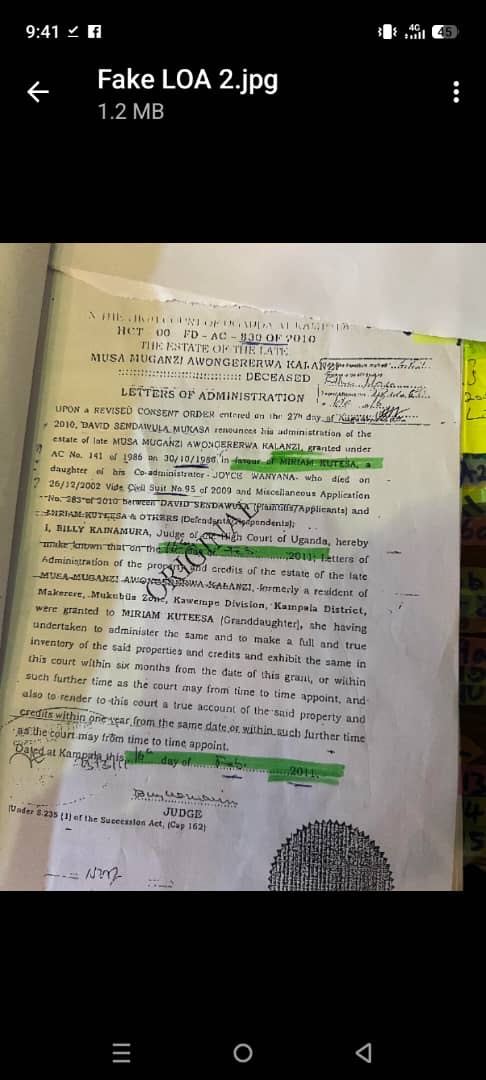 9:41
4G
45
Fake LOA 2.jpg
1.2 MB
HCT - 00 FD - AC - 830 OF 2010
THE ESTATE OF THE LATE
MUSA MUGANZI AWONGERERWA KALANZI
DECEASED
LETTERS OF ADMINISTRATION
UPON A REVISED CONSENT ORDER entered on the 27th day of
2010, DAVID SENDAWULA MUKASA renounces his administration of the
estate of late MUSA MUGANZI AWONGERERWA KALANZI, granted under
AC No. 141 of 1986 on 30/10/1986 in favour of MIRIAM KUTESA, a
daughter of his Co-administrator - JOYCE WANYANA- who died on
26/12/2002 Vide Civil Suit No.95 of 2009 and Miscellaneous Application
No. 283 of 2010 between DAVID SENDAWULA (Plaintiffs/Applicants) and
MIRIAM KUTEESA & OTHERS (Defendants/Respondents);
I, BILLY KAINAMURA, Judge of the High Court of Uganda, hereby
make known that on the 2011; Letters of
Administration of the property and credits of the estate of the late
MUSA MUGANZI AWONGERERWA KALANZI, formerly a resident of
Makerere, Mukubiia Zone, Kawempe Division, Kampala District,
were granted to MIRIAM KUTEESA (Granddaughter), she having
undertaken to administer the same and to make a full and true
inventory of the said properties and credits and exhibit the same in
this court within six months from the date of this grant, or within
such further time as the court may from time to time appoint, and
also to render to this court a true account of the said property and
credits within one year from the same date or within such further time
as the court may from time to time appoint.
Dated at Kampala this 16th day of Feb. 2011.
JUDGE
(Under S.235 (1) of the Succession Act, (Cap 162)
ORIGINAL